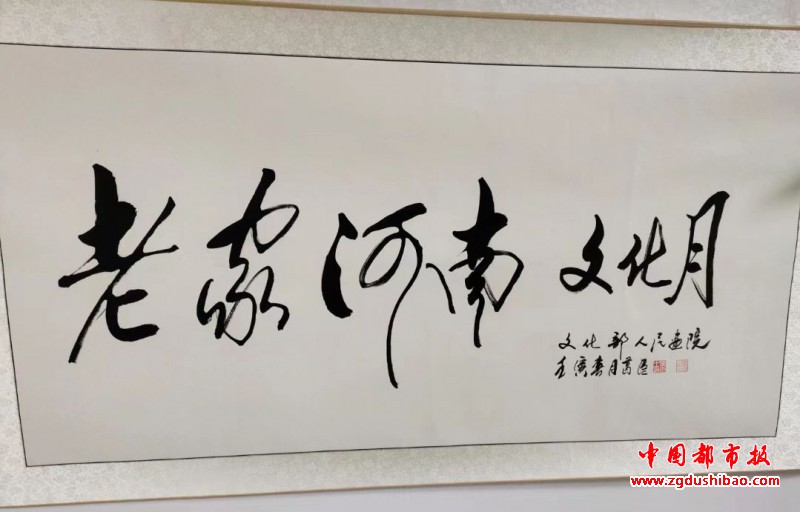 老家河南 文化月
文化部人民画院
中国都市报
www.zgdushibao.com